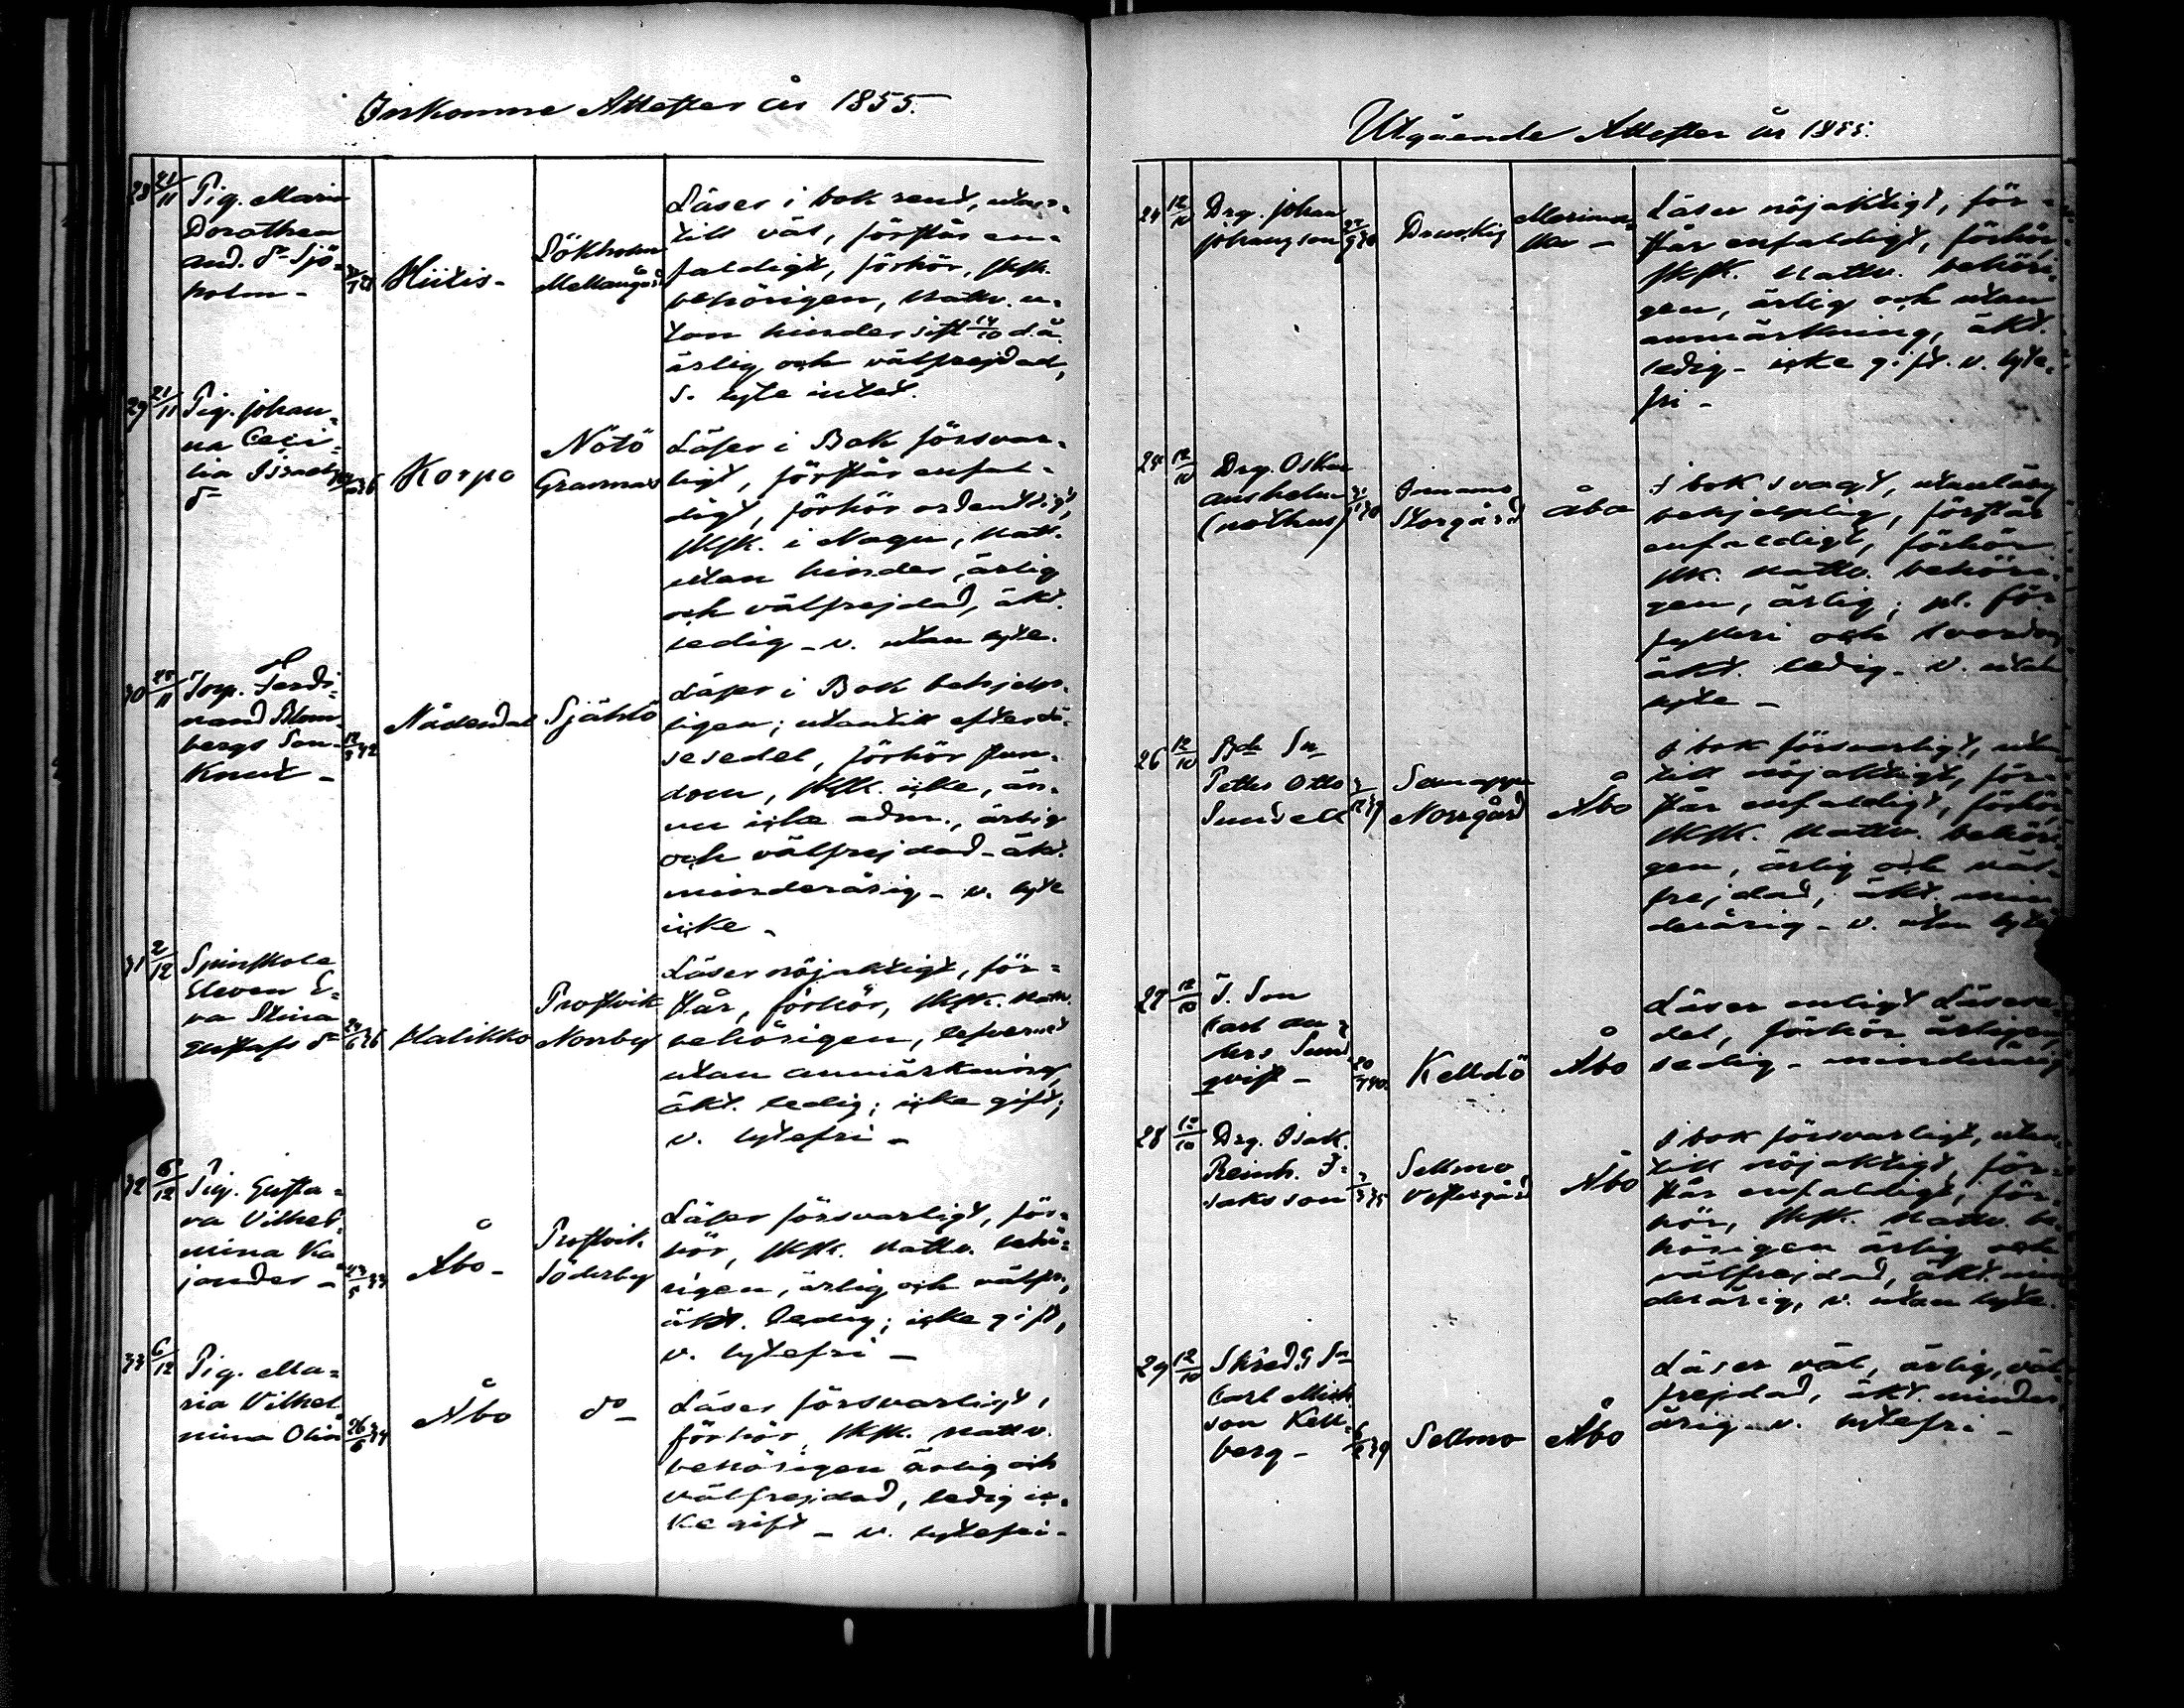 Inkomne Attester år 1855.
28 21/11 Pig. Maria
Dorothea
And. dr Sjö=
holm -
Hiitis -
Lökholm
Mellangård
Läser i bok rent, utan=
till väl, förstår en=
faldigt, förhör, skrk.
behörigen, nattv. u=
tan hinder sist 14/10 d.å.
ärlig och välfrejdad,
v. lyte intet.
29 21/11 Pig. Johan=
na Ceci=
lia Israels
dr
Korpo
Nötö
Grannas
Läser i Bok försvar=
ligt, förstår enfal=
digt, förhör ordentligt,
skrk. i Nagu, natt.
utan hinder, ärlig
och välfrejdad, äkt.
ledig - v. utan lyte.
30 Torp. Ferdi=
nand Blom=
bergs Son
Knut -
12/5 42
Nådendal
Själö
Läser i Bok behjelp=
ligen; utantill efter lä=
sesedel, förhör
dom, skrk. icke, än=
nu icke adm., ärlig
och välfrejdad - äkt.
minderårig - v. lyte
icke -
31 2/12 Spinskole
Eleven E=
va Stina
Gustafs dr
Halikko
Prostvik
Norrby
Läser nöjaktigt, för=
står, förhör, skrk. natt.
behörigen, lefvernet
utan anmärkning,
äkt. ledig; icke gift;
v. lytefri -
32 6/12 Pig. Gusta=
va Vilhel=
mina Ka
jander -
23/5 33
Åbo -
Prostvik
Söderby
Läser försvarligt, för=
hör, skrk. nattv. behö=
rigen, ärlig och välfr.,
äkt. ledig; icke gift,
v. lytefri -
33 6/12 Pig. Ma=
ria Vilhel
mina Olin
26/6 34
Åbo
do
Läser försvarligt,
förhör, skrk. nattv.
behörigen ärlig och
välfrejdad, ledig ic=
ke gift - v. lytefri -
Utgående Attester år 1855.
24 12/10 Drg. Johan
Johansson
Läser nöjaktigt, för=
står enfaldigt, förhör,
skrk. nattv. behöri=
gen, ärlig och utan
anmärkning, äkt.
ledig - icke gift. v. lyte=
fri -
12/10 Drg. Oskar
Anshelm
(nothus)
Innamo
Storgård
Åbo
I bok svagt, utanläsn
behjelplig, förstår
enfaldigt, förhör
skrk. nattv. behöri=
gen, ärlig; pl. för
fylleri och svordom
äkt. ledig - v. utan
lyte -
26 12/10 Bd. Sn
Petter Otto
Sundell
Norrgård
Åbo
I bok försvarligt, utan
till nöjaktigt, för=
står enfaldigt, förhör,
skrk. nattv. behöri=
gen, ärlig och väl=
frejdad, äkt. min
derårig - v. utan lyte
27 12/10 T. Son
Carl An=
ders Sund
qvist -
Kelldö
Åbo
Läser enligt Läsese=
del, förhör ärligen,
ledig - minderårig
28 12/10 Drg. Isak
Reinh. I=
saksson
Sellmo
Vestergård
Åbo
I bok försvarligt, utan=
till nöjaktigt, för=
står enfaldigt, för=
hör, skrk. nattv. be=
hörigen ärlig och
välfrejdad, äkt. min
derårig, v. utan lyte.
29 12/10 Skräd. Sn
Carl Mich
son Kell=
berg -
Sellmo
Åbo
Läser väl, ärlig, väl=
frejdad, äkt. minder
årig - v. lytefri -